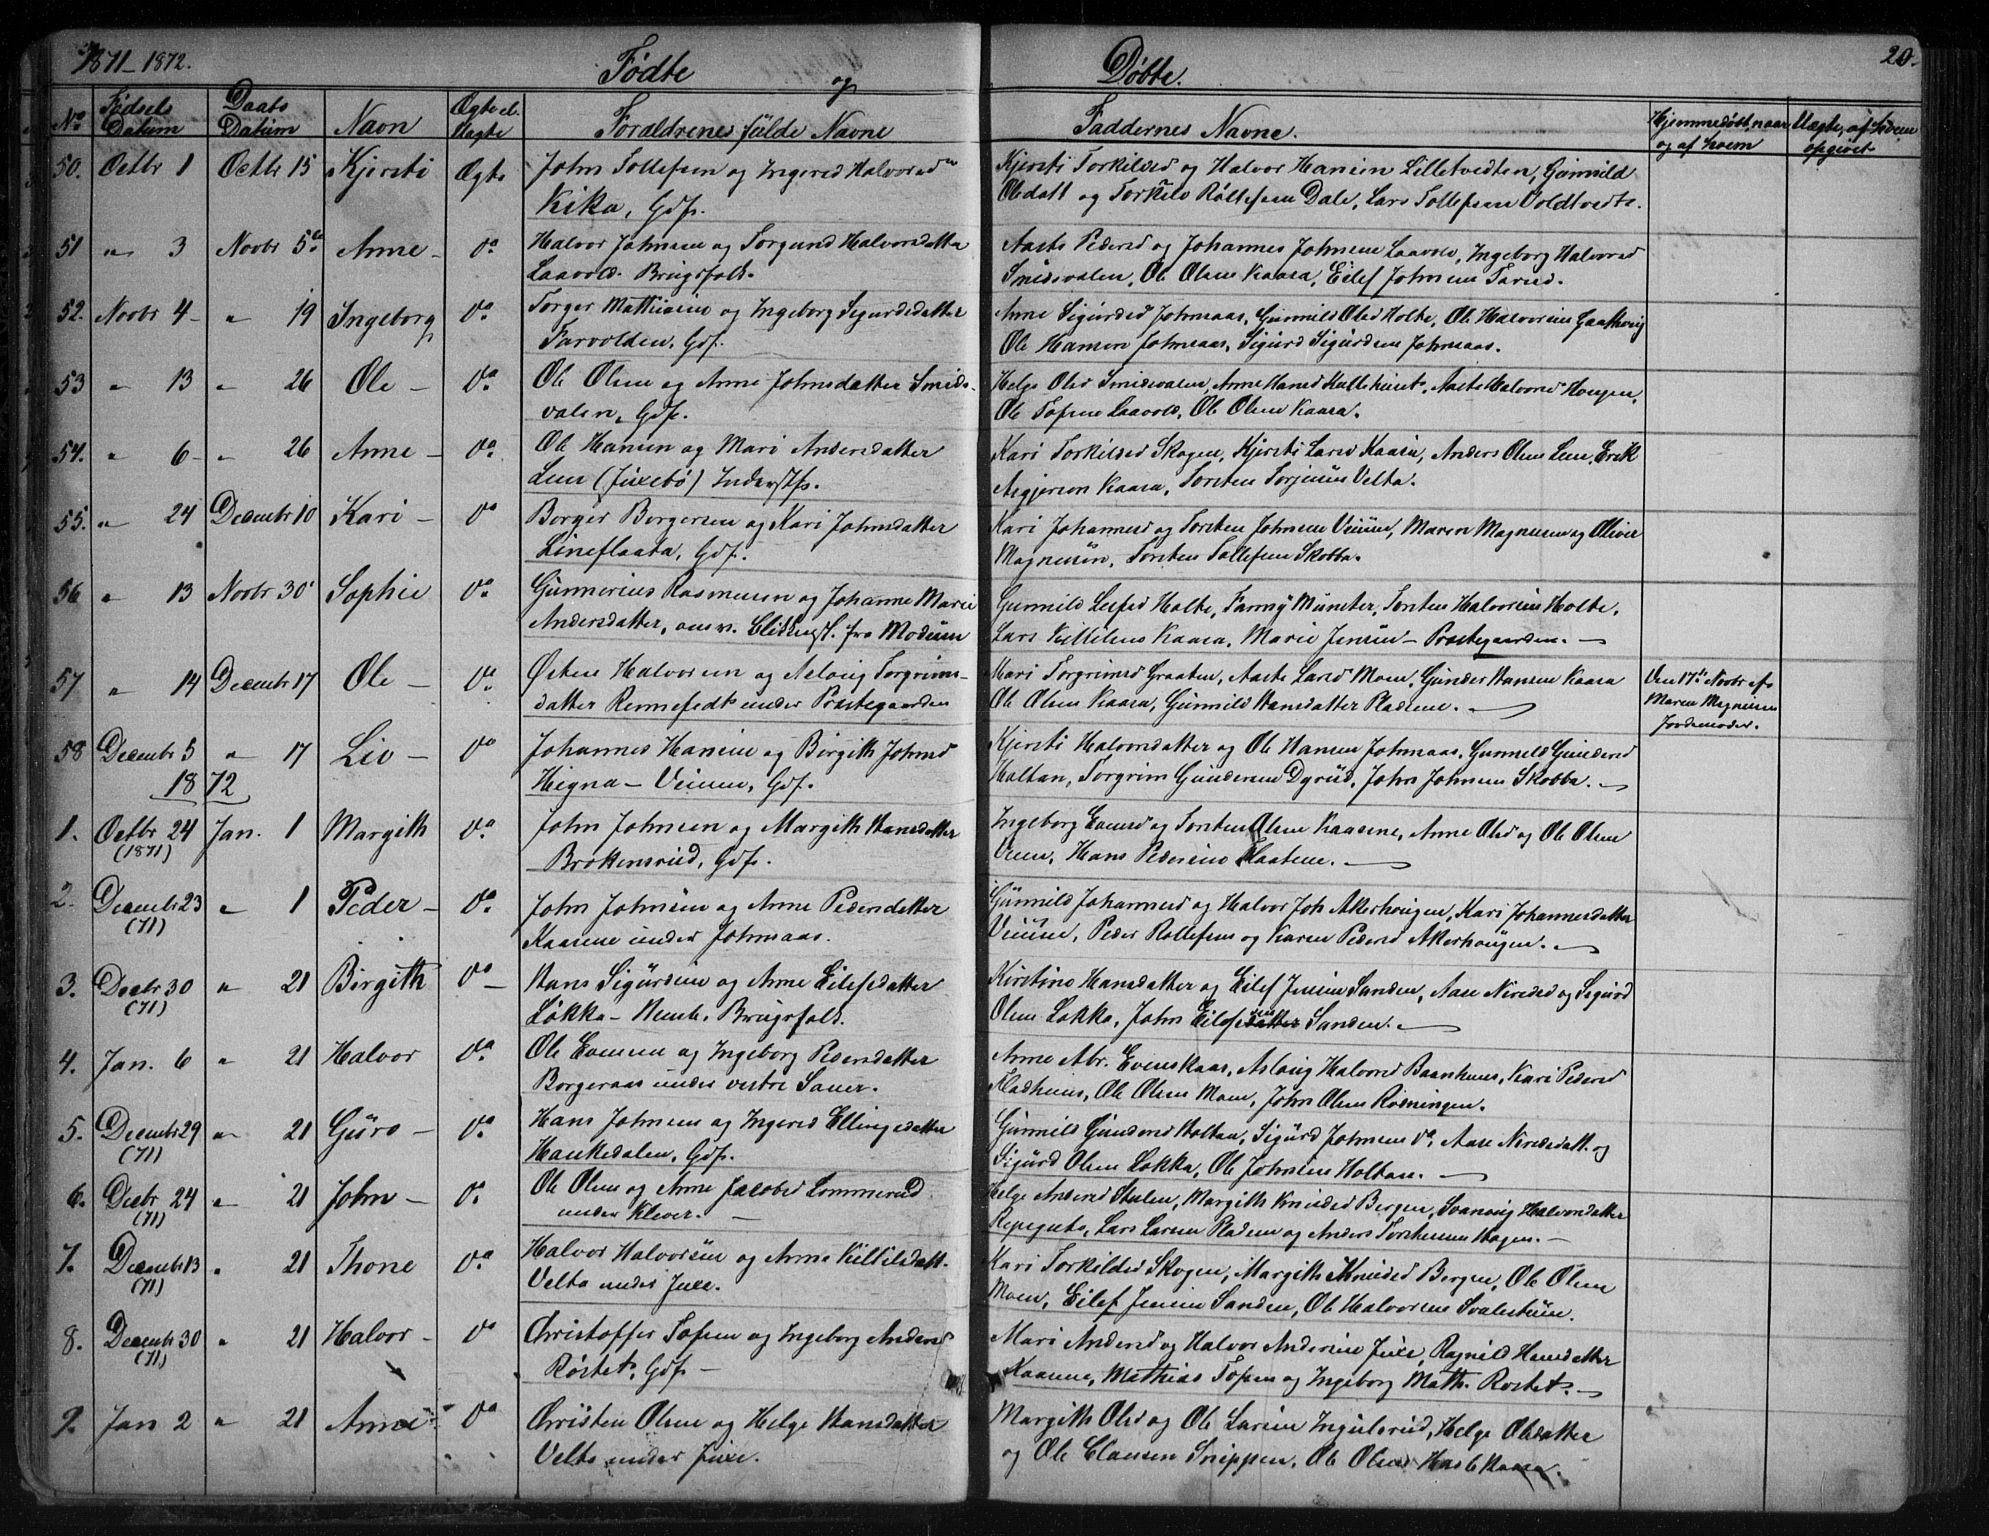 1871–1872.
Fødte
og
Døbte.
20.
No
Fødsels Datum
Daabs Datum
Navn
Ægte el. uægte
Forældrenes fulde Navne
Faddernes Navne.
Hjemmedøbt, naar og af hvem
Uægte, af hvem opgivet
50. Octbr 1 Octbr 15 Kjersti Ægte John Tollefsen og Ingered Halvorsd
Kika, Gdf.
Kjersti Torkilsd og Halvor Hansen Lilletvedten, Gunnild
Olsdatt og Torkild Rollefsen Dale, Lars Tollefsen Voldtvedte.
51 " 3 Novbr 5te Anne – Do Halvor Johnsen og Torgund Halvorsdatter
Laavold. Brugsfolk.
Aaste Pedersd og Johannes Johnsen Laavold, Ingeborg Halvorsd
Smedsvalen, Ole Olsen Kaasa, Eilef Johnsen
52. Novbr 4 – " 19 Ingeborg Do Torger Mathisen og Ingeborg Sigurdsdatter
Farvolden, Gdf.
Anne Sigurdsd Johnsaas, Gunnild Olsd Holte, Ole Halvorsen
Ole Hansen Johnsaas, Sigurd Sigurdsen Johnsaas.
53 " 13 " 26 Ole – Do Ole Olsen og Anne Johnsdatter Smeds-
valen, Gdf.
Helge Olsd Smedsvalen, Anne Hansd Aaste Halvorsd Hougen,
Ole Tofsen Laavold, Ole Olsen Kaasa.
54. " 6 – " 26 Anne – Do Ole Hansen og Mari Andersdatter
Lien (Juxebø) Inderstf.
Kari Torkilsd Skogen, Kjersti Larsd Kaasa, Anders Olsen Lien, Erik
Kaasa, Torsten Torjusen Velta.
55. " 24 Decembr 10 Kari – Do Borger Borgersen og Kari Johnsdatter
Løneflaata, Gdf.
Kari Johannesd og Torsten Johnsen Veum, Maren Magnusen og Oliver
Magnusen, Torsten Tollefsen Skobba.
56 " 13 Novbr 30 Sophie Do Gunnerius Rasmusen og Johanne Marie
Andersdatter, fra Modum
Gunnild Leifsd Holte, Fanny Munster, Torsten Halvorsen Holte,
Lars Kittilsen Kaasa, Marie Jensen – Præstegaarden. –
57 " 14 Decembr 17 Ole – Do Østen Halvorsen og Aslaug Torgrims-
datter Rennefedt under Præstegaarden
Mari Torgrimsd Graaten, Aaste Larsd Moen, Gunder Hansen Kaasa
Ole Olsen Kaasa, Gunnild Hansdatter Pladsene. –
Den 17de Novbr af
Maren Magnusen
Jordemoder.
58 Decembr 5 " 17 Liv – Do Johannes Hansen og Birgith Johnsd
Higna – Veum, Gdf.
Kjersti Halvorsdatter og Ole Hansen Johnsaas, Gunnild Gundersd
Holtan, Torgrim Gundersen Dyrud, John Johnsen Skobba. –
1872
1. Octbr 24 (1871) Jan. 1 Margith Do John Johnsen og Margith Hansdatter
Brokensrud, Gdf.
Ingeborg Evensd og Torsten Olsen Kaasene, Anne Olsd og Ole Olsen
Veum, Hans Pedersen Flaatene. –
2. Decembr 23 (71) " 1 Peder – Do John Johnsen og Anne Pedersdatter
Kaasene under Johnsaas.
Gunnild Johannesd og Halvor Joh Akerhougen, Kari Johannesdatter
Veum, Peder Rollefsen og Karen Pedersd Akerhougen. –
3. Decbr 30 (71) " 21 Birgith Do – Hans Sigurdsen og Anne Eilefsdatter
Løkka – Nordb. Brugsfolk.
Kirstine Hansdatter og Eilef Jensen Sanden, Aase Niridsd og Sigurd
Olsen Løkka, John Eilefsen Sanden. –
4. Jan. 6 " 21 Halvor Do Ole Evensen og Ingeborg Pedersdatter
Borgeraas under vestre Sauer.
Anne Abr. Evenskaas, Aslaug Halvorsd Baanhuus, Kari Pedersd
Fladhuus, Ole Olsen Moen, John Olsen Rødningen.
5. Decembr 29 (71) " 21 Guro – Do Hans Johnsen og Ingered Ellingsdatter
Haukedalen, Gdf.
Gunnild Gundersd Holtan, Sigurd Johnsen Do, Aase Niridsdatt. og
Sigurd Olsen Løkka, Ole Johnsen Holtan. –
6. Decbr 24 (71) " 21 John – Do Ole Olsen og Anne Jacobsd Lommerud
under Klever. –
Helge Andersd Stulen, Margith Knudsd Bergen, Svanaug Halvorsdatter
Lars Larsen Pladsen og Anders Torstensen Hagen. –
7. Decembr 13 (71) " 21 Thone Do Halvor Halvorsen og Anne Kittilsdatt.
Velta under Juxe.
Kari Torkildsd Skogen, Margith Knudsd Bergen, Ole Olsen
Moen, Eilef Jensen Sanden, Ole Halvorsen Svalestuen.
8. Decembr 30 (71) " 21 Halvor – Do Christoffer Tofsen og Ingeborg Andersd
Røstet, Gdf –
Mari Andersd og Halvor Andersen Juxe, Ragnild Hansdatter
Kaasene, Mathias Tofsen og Ingeborg Math. Røstet. –
9. Jan 2 " 21 Anne Do Christen Olsen og Helge Hansdatter
Velta under Juxe.
Margith Olsd og Ole Larsen Ingulsrud, Helge Olsdatter
og Ole Clausen Snippen, Ole Olsen Kaasa.